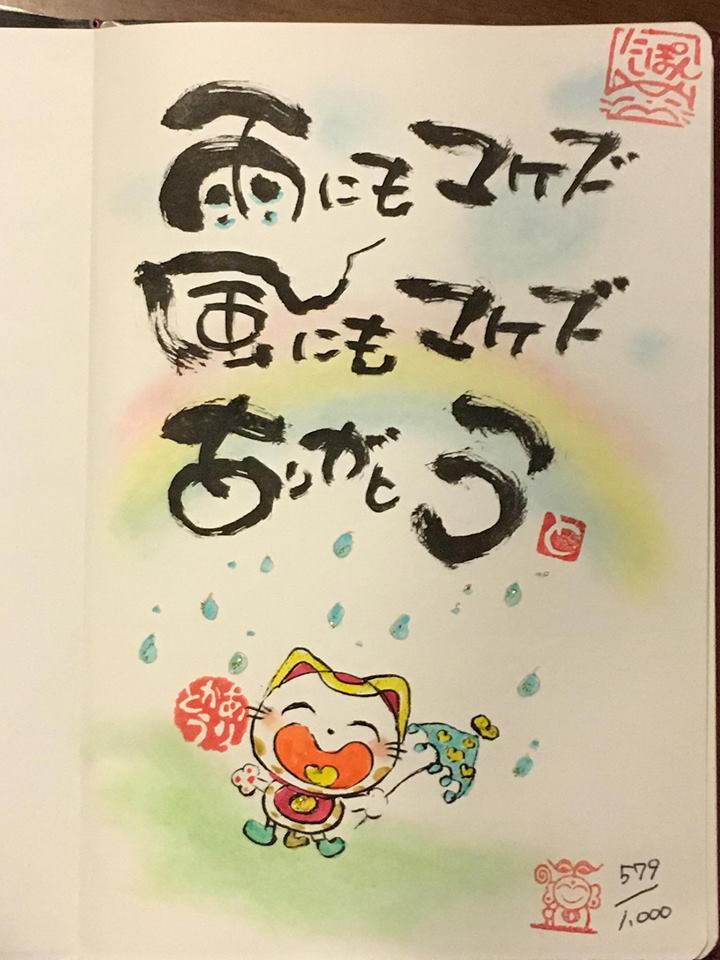 にっぽん
雨にもマケズ
風にもマケズ
ありがとう
ありがとう
579/1,000